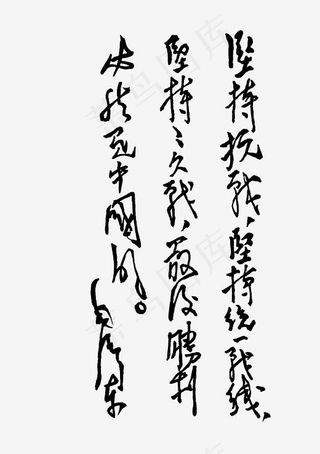 坚持抗战、坚持统一战线、
坚持持久战、最后胜利
必然是中国的。
毛泽东